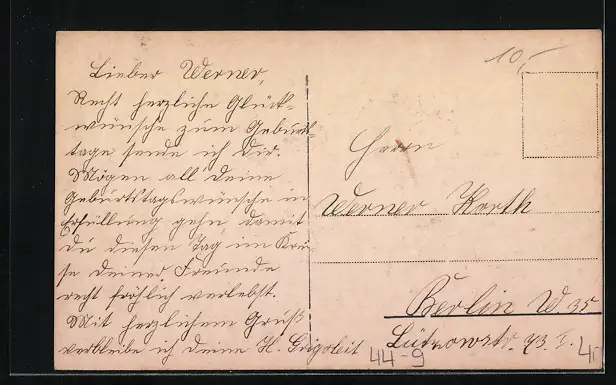 Lieber Werner,
Recht herzliche Glück-
wünsche zum Geburts-
tage sende ich Dir.
Mögen all' deine
Geburtstagswünsche in
Erfüllung gehn, damit
du diesen Tag im Krei-
se deiner Freunde
recht fröhlich verlebst.
Mit herzlichem Gruß
verbleibe ich deine H. Grigoleit
10,-
Herrn
Werner Korth
Berlin W 35
Lützowstr. 93 I.
44-9